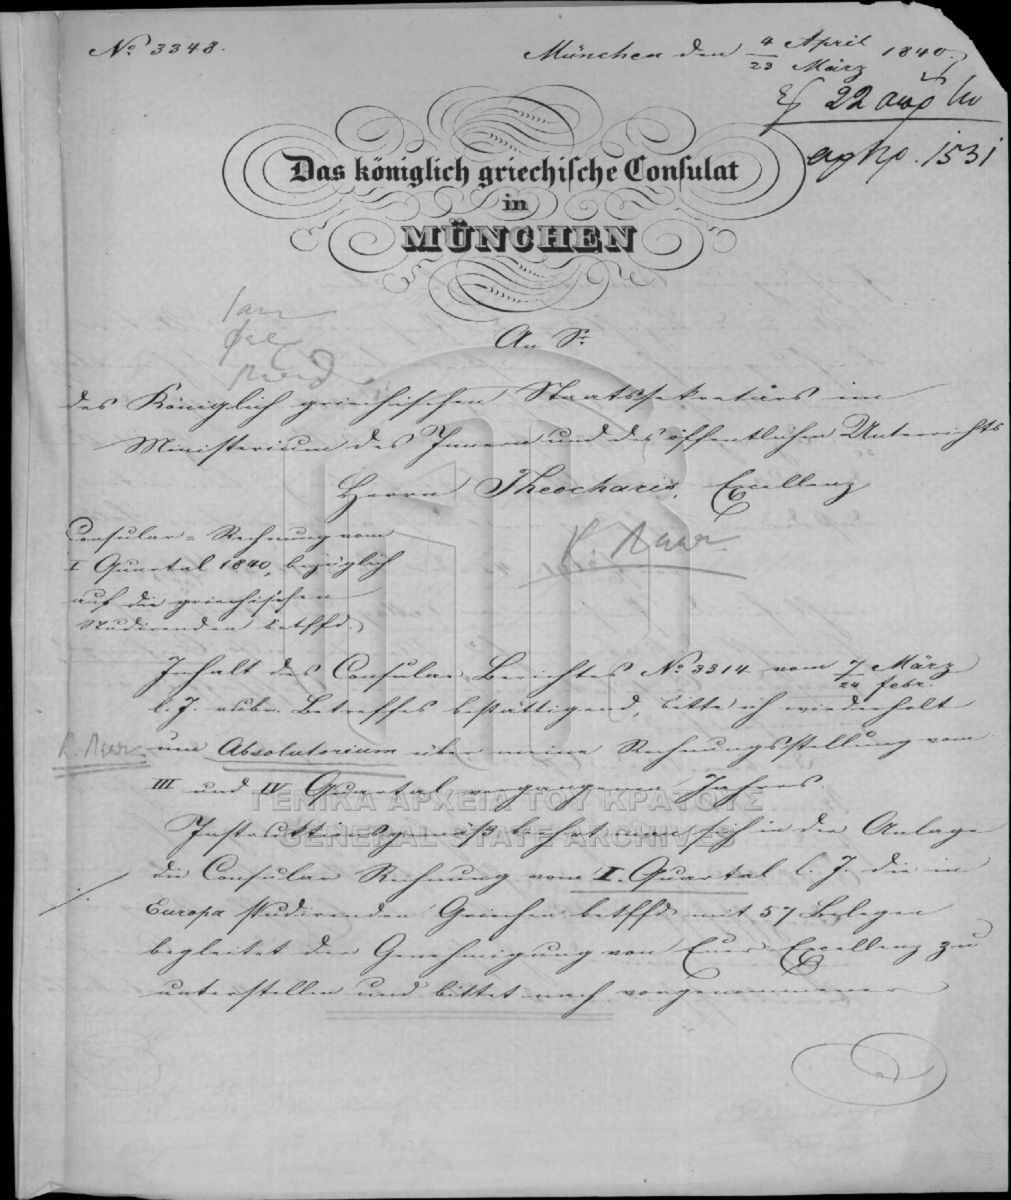 No 3348.
München den 4 April 1840.
23 März
22
1531
Das königlich griechische Consulat
in
MÜNCHEN
An Sr
des Königlich griechischen Staatssekretärs im
Ministerium des Innern und des öffentlichen Unterrichts
Herrn Theocharis, Excellenz
Consular-Rechnung vom
I Quartal 1840, bezüglich
auf die griechischen
Studirenden betffd.
Inhalt des Consular Berichtes No 3314 vom 7 März
24 febr.
l. J. rubr. Betreffes bestättigend, bitte ich wiederholt
um Absolutorium über meine Rechnungsstellung vom
III und IV Quartal vergangenen Jahres.
ΓΕΝΙΚΑ ΑΡΧΕΙΑ ΤΟΥ ΚΡΑΤΟΥΣ
GENERAL STATE ARCHIVES
Instruktionsgemäß beehrt man sich in der Anlage
die Consular Rechnung vom I. Quartal l. J. die in
Europa studirenden Griechen betffd mit 57 Belegen
begleitet der Genehmigung von Euer Excellenz zu
unterstellen und bittet nach vorgenommener